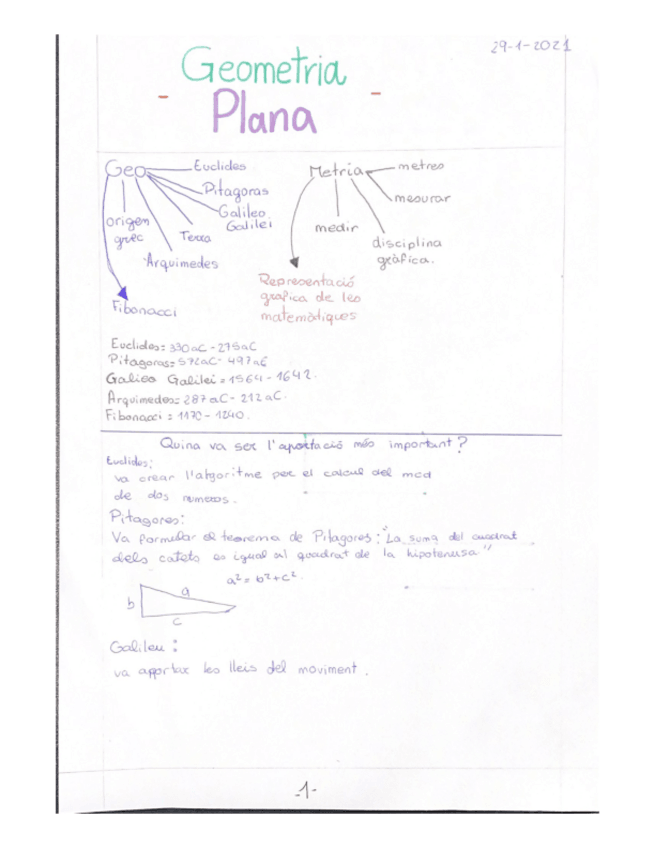 29-1-2021
Geometria
- Plana -
Geo
Euclides
Pitagoras
Galileo
Galilei
Terra
origen
grec
Arquimedes
Fibonacci
Metria
metres
mesurar
medir
disciplina
gràfica.
Representació
gràfica de les
matemàtiques
Euclides: 330 aC - 275 aC
Pitagoras: 572 aC - 497 aC
Galileo Galilei = 1564 - 1642.
Arquimedes: 287 aC - 212 aC.
Fibonacci = 1170 - 1240.
Quina va ser l'aportació més important?
Euclides:
va crear l'algoritme per el calcul del mcd
de dos numeros.
Pitagores:
Va formular el teorema de Pitagores: "La suma del quadrat
dels catets es igual al quadrat de la hipotenusa"
a²= b²+c².
a
b
c
Galileu:
va aportar les lleis del moviment.
-1-